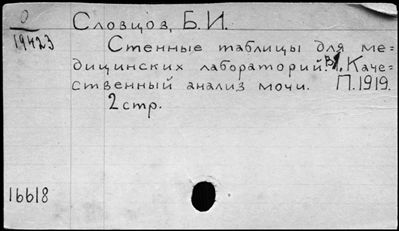 0
19423
Словцов, Б.И.
Стенные таблицы для ме=
дицинских лабораторий. В1. Каче=
ственный анализ мочи. П.1919.
2 стр.
16618